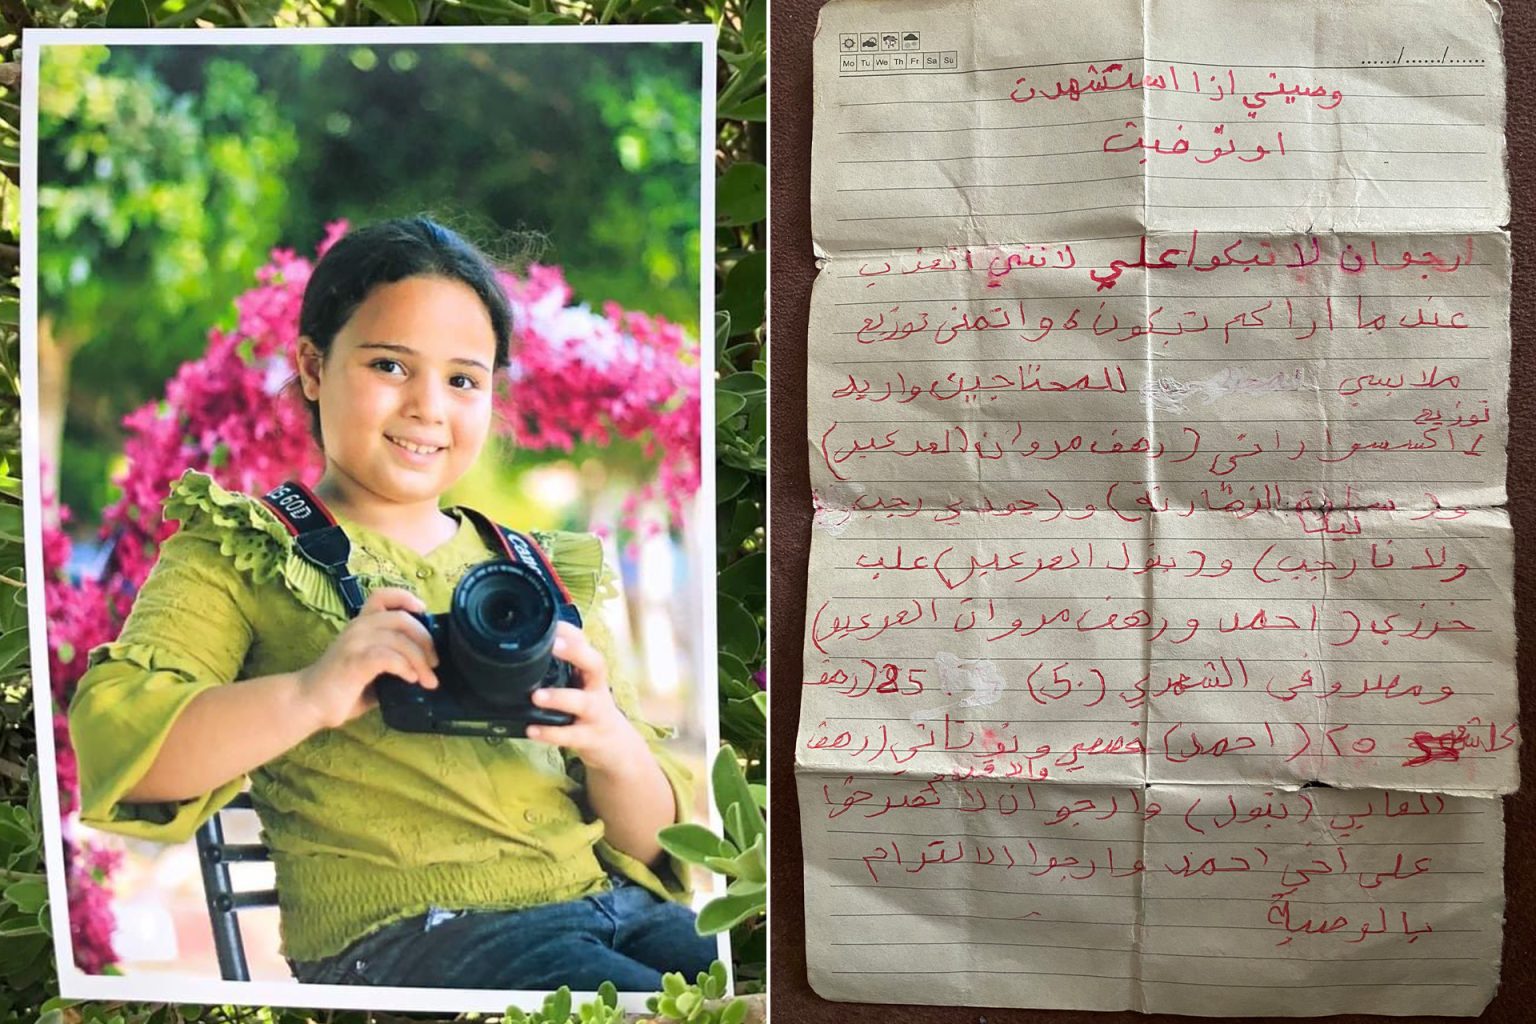 EOS 60D
Canon
Mo Tu We Th Fr Sa Su
....../....../......
وصيتي اذا استشهدت
او توفيت
ارجو ان لا تبكوا علي لانني اتعذب
عندما اراكم تبكون و اتمنى توزيع
ملابسي للمحتاجين واريد
توزيع
اكسسواراتي (رهف مروان العرعير)
و( و(جودي رجب)
لينا
ولانا رجب) و(بتول العرعير) علب
خرزي (احمد ورهف مروان العرعير)
ومصروفي الشهري (50) 25 (رهف
25 (احمد) قصصي و (رهف
العابي (بتول) وارجو ان لا تصرخوا
على اخي احمد وارجوا الالتزام
بالوصية